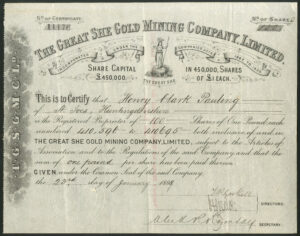 No. OF CERTIFICATE
No. OF SHARES
THE GREAT SHE GOLD MINING COMPANY, LIMITED.
INCORPORATED UNDER THE
SHARE CAPITAL
£450,000.
IN 450,000 SHARES
OF £1 EACH.
THE GREAT SHE
This is to Certify that Henry Clark Pauling
of St Ives, Huntingdonshire
is the Registered Proprietor of 100 Shares of One Pound each
numbered 410,596 to 410695 both inclusive of and in
THE GREAT SHE GOLD MINING COMPANY, LIMITED, subject to the Articles of
Association and to the Regulations of the said Company and that the
sum of one pound per share has been paid thereon
GIVEN under the Common Seal of the said Company
the 25th day of January 1888
DIRECTORS.
SECRETARY.
T.G.S.G.M.C. Ld.